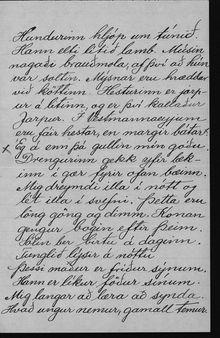 Hundurinn hljóp um túnið.
Hann elti lítið lamb. Músin
nagaði brauðmola, af því að hún
var soltin. Mýsnar eru hræddar
við köttinn. Hesturinn er jarp-
ur á litinn, og er því kallaður
Jarpur. Í Vestmannaeyjum
eru fáir hestar, en margir bátar.
x Eg á enn þá gullin mín góðu.
Drengurinn gekk yfir læk-
inn í gær fyrir ofan bæinn.
Mig dreymdi illa í nótt og
lét illa í svefni. Þetta eru
löng göng og dimm. Konan
gengur bogin eftir þeim.
Sólin ber birtu á daginn.
Tunglið lýsir á nóttu
Þessi maður er fríður sýnum.
Hann er líkur föður sínum.
Mig langar að læra að synda.
Hvað ungur nemur, gamall temur.